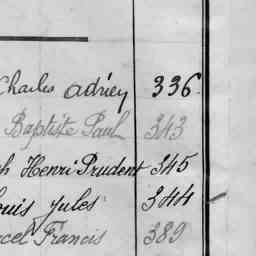 Charles Adrien 336.
Baptiste Paul 343
ph Henri Prudent 345
ouis Jules 344
rcel Francis 389